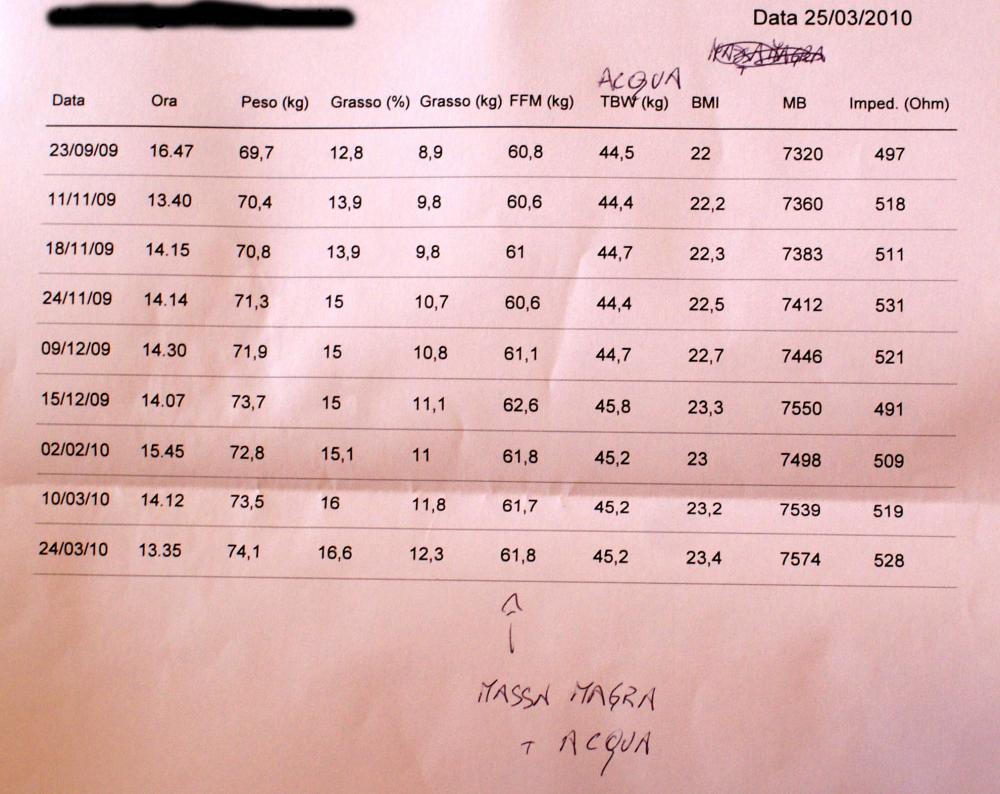 Data 25/03/2010
ACQUA
Data Ora Peso (kg) Grasso (%) Grasso (kg) FFM (kg) TBW (kg) BMI MB Imped. (Ohm)
23/09/09 16.47 69,7 12,8 8,9 60,8 44,5 22 7320 497
11/11/09 13.40 70,4 13,9 9,8 60,6 44,4 22,2 7360 518
18/11/09 14.15 70,8 13,9 9,8 61 44,7 22,3 7383 511
24/11/09 14.14 71,3 15 10,7 60,6 44,4 22,5 7412 531
09/12/09 14.30 71,9 15 10,8 61,1 44,7 22,7 7446 521
15/12/09 14.07 73,7 15 11,1 62,6 45,8 23,3 7550 491
02/02/10 15.45 72,8 15,1 11 61,8 45,2 23 7498 509
10/03/10 14.12 73,5 16 11,8 61,7 45,2 23,2 7539 519
24/03/10 13.35 74,1 16,6 12,3 61,8 45,2 23,4 7574 528
MASSA MAGRA
+ ACQUA